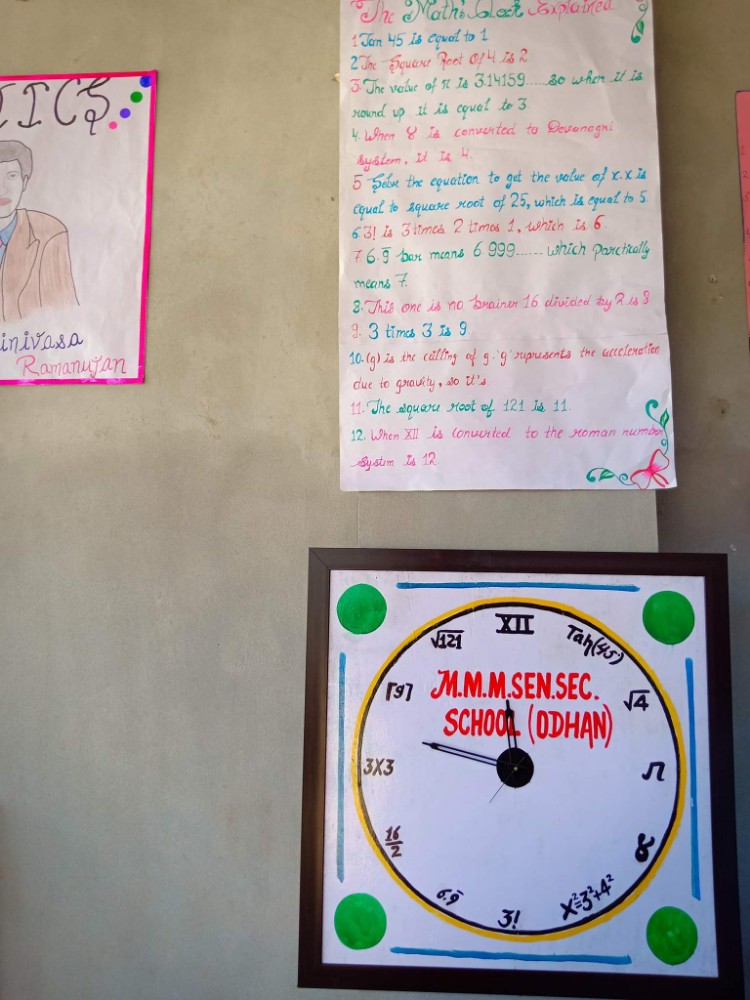 The Math's Clock Explained
1 Tan 45 is equal to 1
2 The Square Root Of 4 is 2
3. The value of π is 3.14159......so when it is
round up it is equal to 3
4. When 8 is converted to Devanagri
system, it is 4.
5 Solve the equation to get the value of x. x is
equal to square root of 25, which is equal to 5
6. 3! is 3 times 2 times 1, which is 6.
7. 6.9̅ bar means 6.999...... which Parctically
means 7.
8. This one is no brainer 16 divided by 2 is 8
9. 3 times 3 is 9
10. (g) is the ceiling of g. 'g' represents the acceleration
due to gravity, so it's
11. The square root of 121 is 11.
12. When XII is converted to the roman number
System is 12
TICS
inivasa
Ramanujan
XII
Tan(45)
√4
π
४
x²=3²+4²
3!
6.9̅
16/2
3X3
⌈g⌉
√121
M.M.M.SEN.SEC.
SCHOOL (ODHAN)